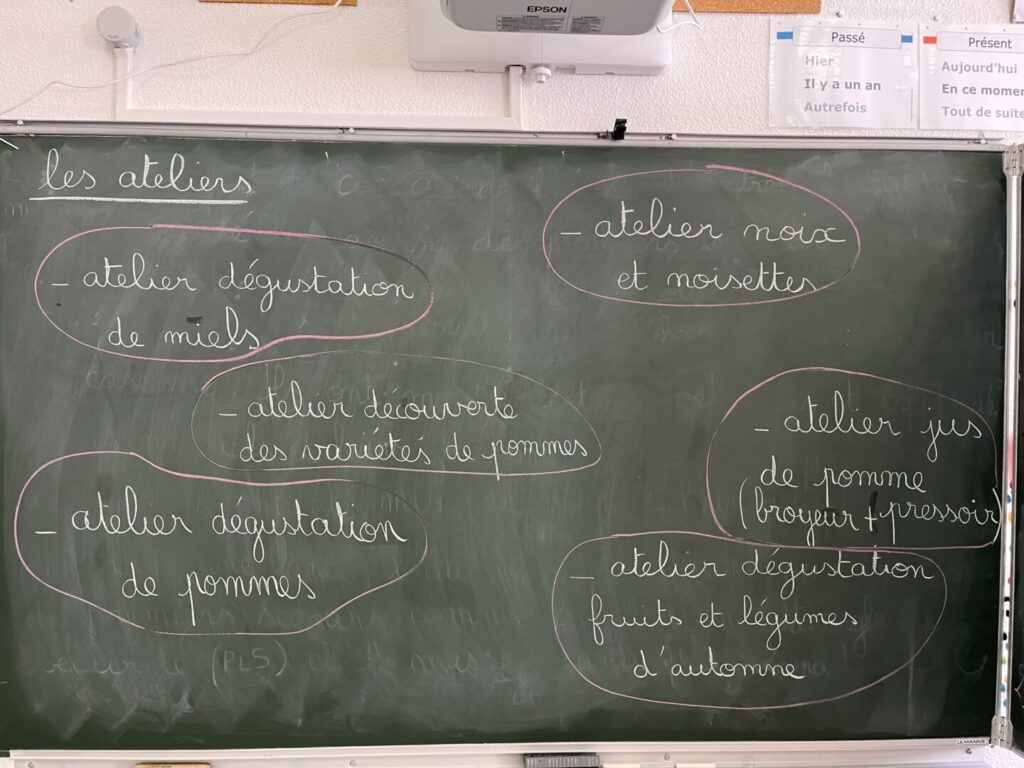 EPSON
Passé
Hier
Il y a un an
Autrefois
Présent
Aujourd'hui
En ce momen
Tout de suite
les ateliers
- atelier dégustation
de miels
- atelier découverte
des variétés de pommes
- atelier dégustation
de pommes
- atelier noix
et noisettes
- atelier jus
de pomme
(broyeur + pressoir)
- atelier dégustation
fruits et légumes
d'automne
(PLS)